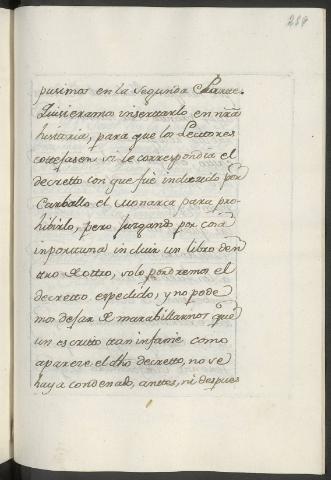 289
pusimos en la segunda Parte.
Quisieramos insertarlo en nrã
historia, para que los Lectores
cottefasen si le correspondia el
decretto con que fue inducido por
Carballo el Monarca para pro-
hibirlo, pero juzgando por cosa
inporttuna incluir un libro den
ttro de ottro, solo pondremos el
decretto expedido, y no pode
mos dejar de marabillarnos que
un escritto ttan infame como
aparece el dho decretto, no se
haya condenado, anttes, ni despues